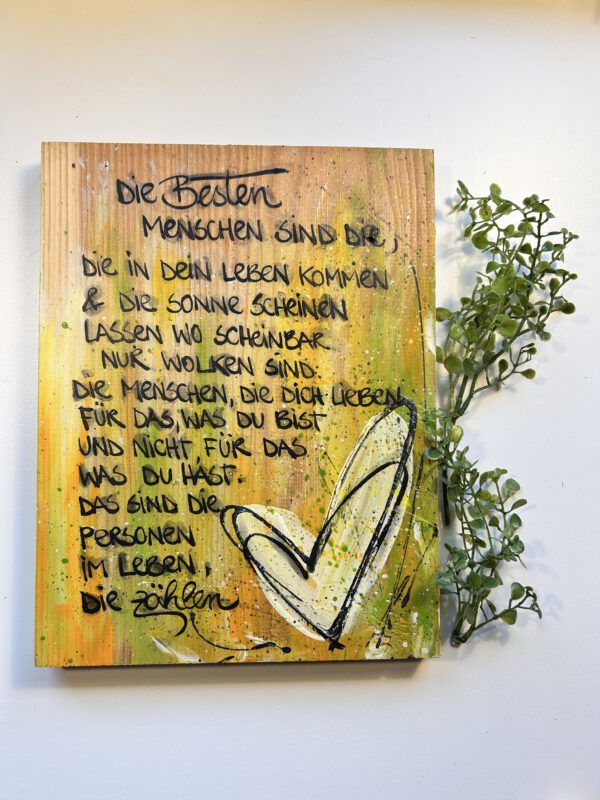 Die Besten
Menschen sind die,
die in dein Leben kommen
& die Sonne scheinen
lassen wo scheinbar
nur Wolken sind.
Die Menschen, die dich lieben
für das, was du bist
und nicht für das
was du hast.
Das sind die
Personen
im Leben,
die zählen